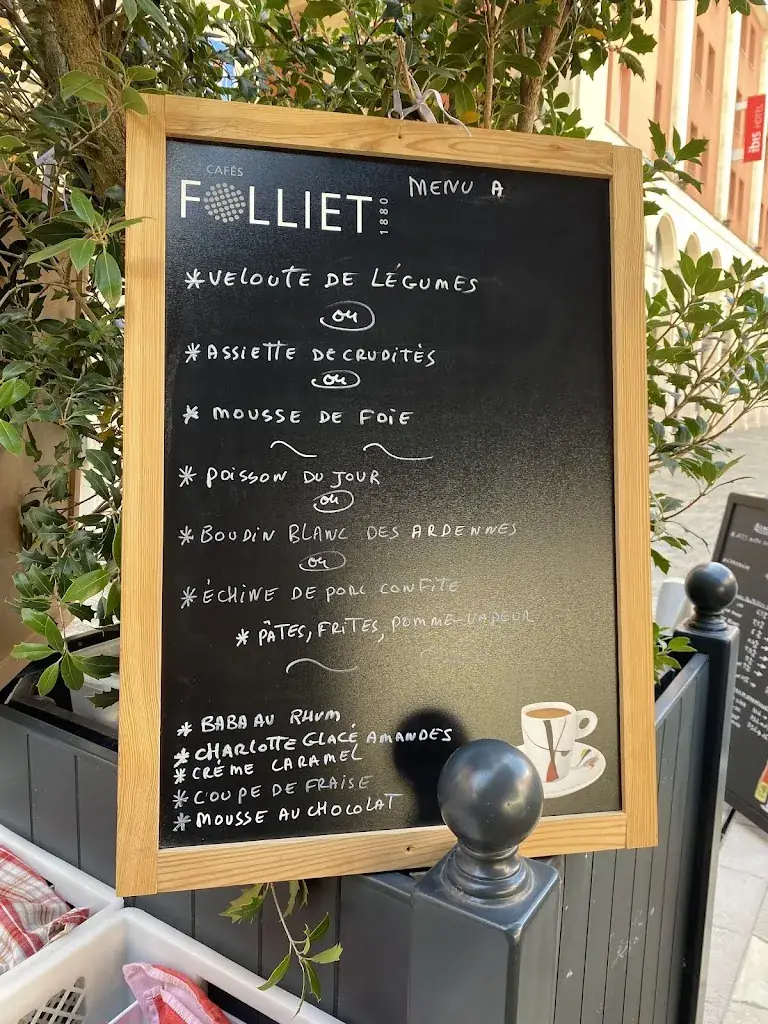 CAFÉS
FOLLIET
1880
MENU A
*VELOUTE DE LÉGUMES
ou
*ASSIETTE DE CRUDITÈS
ou
* MOUSSE DE FOIE
* POISSON DU JOUR
ou
* BOUDIN BLANC DES ARDENNES
ou
* ÉCHINE DE PORC CONFITE
* PÂTES, FRITES, POMME-VAPEUR
* BABA AU RHUM
* CHARLOTTE GLACÉ AMANDES
* CRÈME CARAMEL
* COUPE DE FRAISE
* MOUSSE AU CHOCOLAT
ibis HOTEL